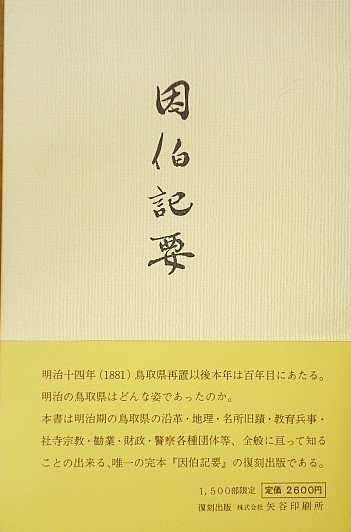 因伯記要
明治十四年(1881)鳥取県再置以後本年は百年目にあたる。
明治の鳥取県はどんな姿であったのか。
本書は明治期の鳥取県の沿革・地理・名所旧蹟・教育兵事・
社寺宗教・勧業・財政・警察各種団体等、全般に亘って知る
ことの出来る、唯一の完本『因伯記要』の復刻出版である。
1,500部限定 定価 2600円
復刻出版 株式会社 矢谷印刷所